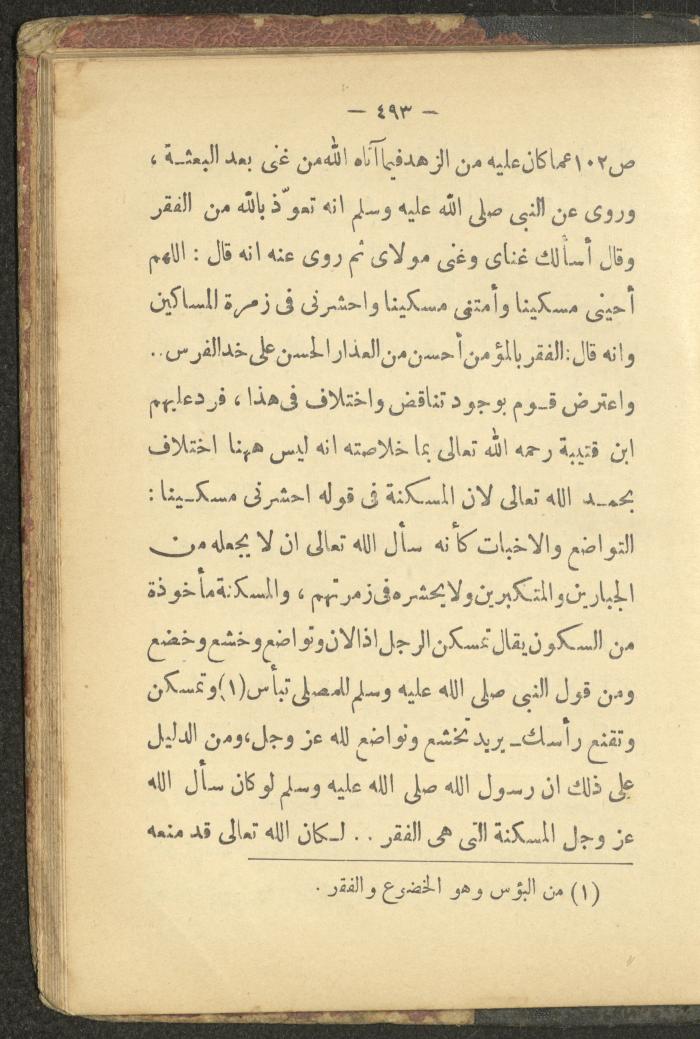 — ٤٩٣ —
ص١٠٢عما كان عليه من الزهد فيما آتاه الله من غنى بعد البعثـة ،
وروى عن النبى صلى الله عليه وسلم انه تعوّذ بالله من الفقر
وقال أسألك غناى وغنى مولاى ثم روى عنه انه قال : اللهم
أحينى مسكينا وأمتنى مسكينا واحشرنى فى زمرة المساكين
وانه قال: الفقر بالمؤمن أحسن من العذار الحسن على خد الفرس ..
واعترض قـوم بوجود تناقض واختلاف فى هذا ، فرد عليهم
ابن قتيبة رحمه الله تعالى بما خلاصته انه ليس ههنا اختلاف
بحمـد الله تعالى لان المسكنة فى قوله احشرنى مسكـينا :
التواضع والاخبات كأنه سأل الله تعالى ان لا يجعله من
الجبارين والمتكبرين ولا يحشره فى زمرتهم ، والمسكنة مأخوذة
من السكون يقال تمسكن الرجل اذا لان وتواضع وخشع وخضع
ومن قول النبى صلى الله عليه وسلم للمصلى تبأس (١) وتمسكن
وتقنع رأسك ـ يريد تخشع وتواضع لله عز وجل، ومن الدليل
على ذلك ان رسول الله صلى الله عليه وسلم لو كان سأل الله
عز وجل المسكنة التى هى الفقر .. لـكان الله تعالى قد منعه
(١) من البؤس وهو الخضوع والفقر .